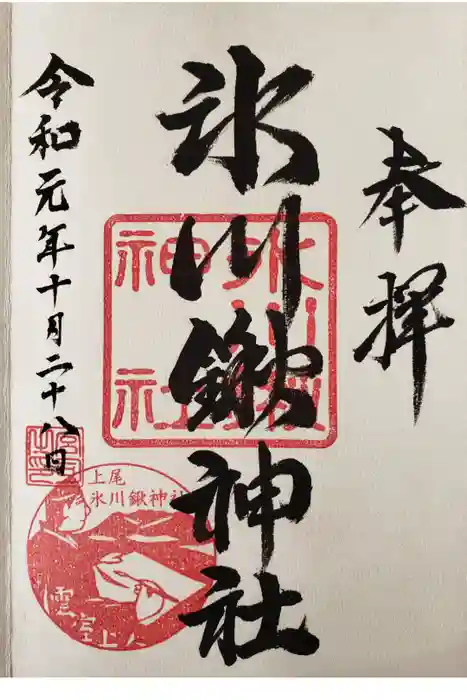 奉拝
氷川鍬神社
氷川鍬神社
令和元年十月二十八日
上尾
氷川鍬神社
雲室上人